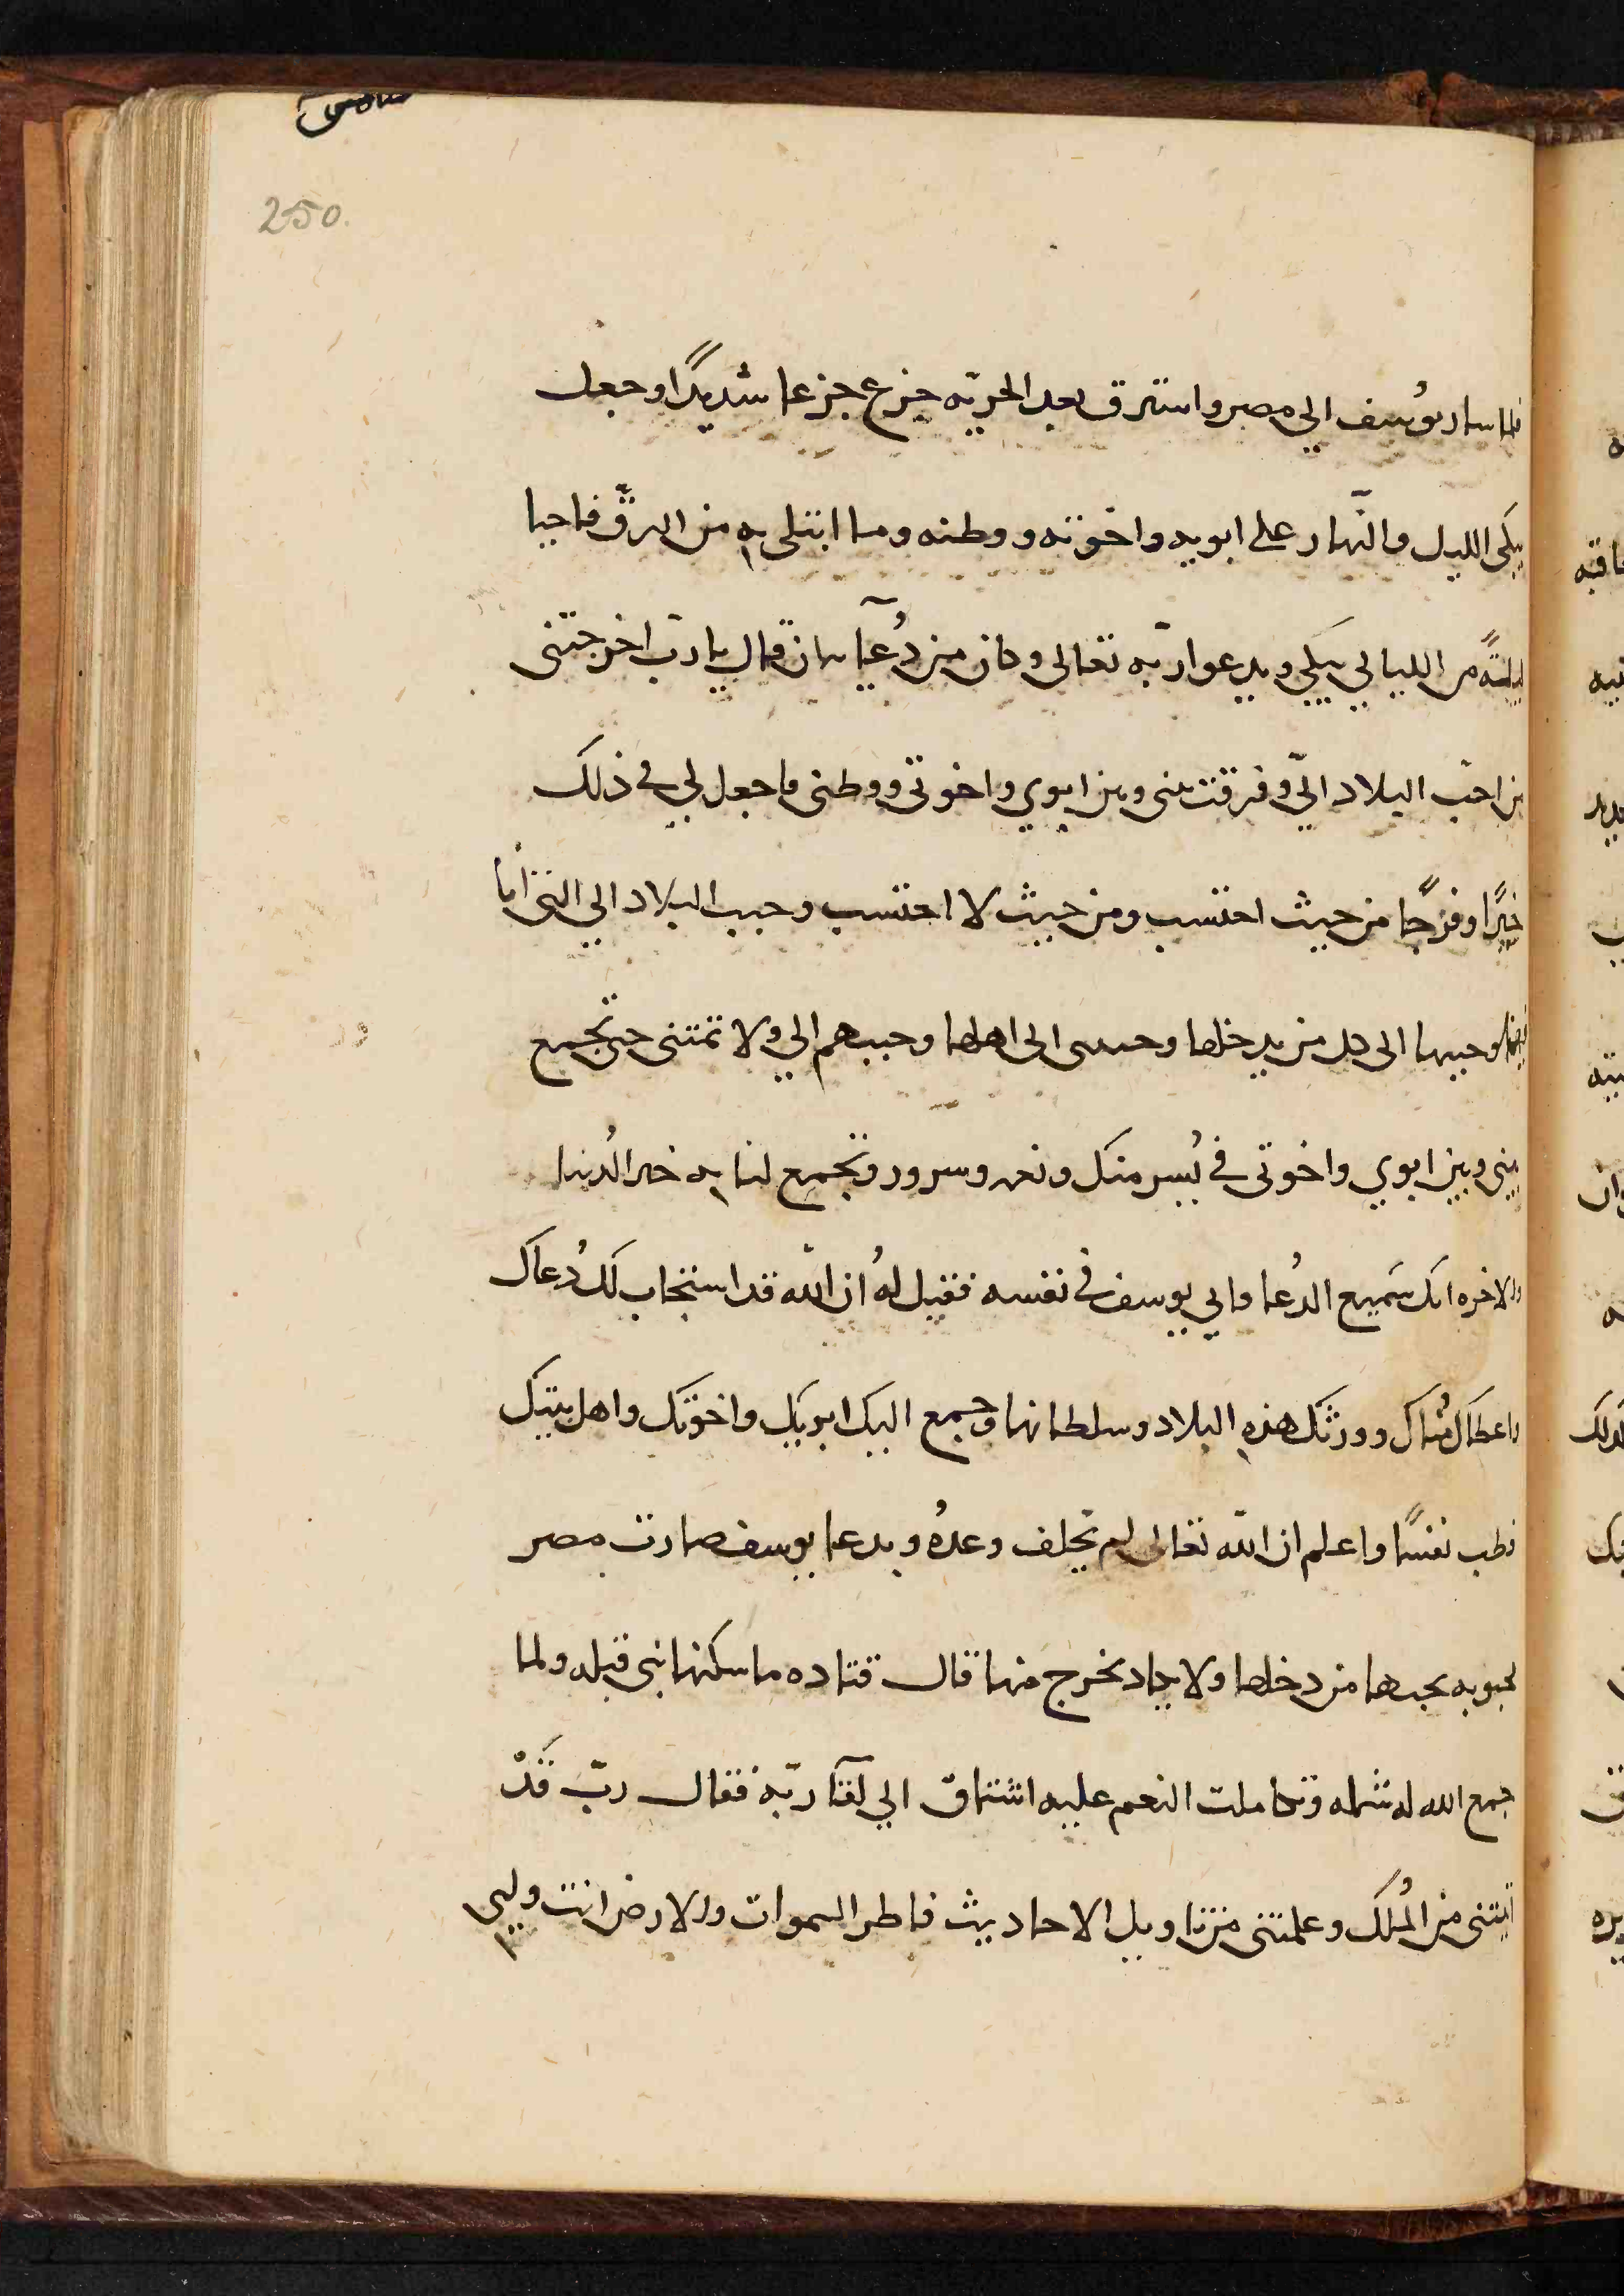 250
فلما سار يوُسف الي مصر واسترق بعد الحريّه جزع جزعا شديدًا وجعل
يبكى الليل والنّهار على ابويه واخوته ووطنه وما ابتلى به من الرقّ فاحيا
ليلةً من الليالي يبكي ويدعوا ربّه تعالى وكان من دُعآيه ان قال يا ربّ اخرجتنى
من احبّ البلاد اليّ وفرقت بينى وبين ابوي واخوتى ووطنى فاجعل لي في ذلك
خيرًا وفرجًا من حيث احتسب ومن حيث لا احتسب وحبب البلاد الي التى انا
فيها وحببها الى كل من يدخلها وحببنى الى اهلها وحببهم الي ولا تمتنى حتى تجمع
بينى وبين ابوي واخوتى في يُسر منك ونعمه وسرور وتجمع لنا به خير الدُنيا
والاخره انك سَميع الدُعا فاتي يوسف في نفسه فقيل لهُ ان اللّه قد استجاب لك دُعاك
واعطاك مُناك وورثك هذه البلاد وسلطانها وجمع اليك ابويك واخوتك واهل بيتك
فطب نفسًا واعلم ان اللّه تعالى لم يخلف وعدهُ وبدعا يوسف صارت مصر
محبوبه يحبها من دخلها ولا يكاد يخرج منها قال قتاده ما سكنها نبى قبله ولما
جمع الله له شمله وتكاملت النعم عليه اشتاق الي لقآ ربّه فقال ربّ قَدْ
اتيتنى من المُلك وعلمتنى من تاويل الاحاديث فاطر السموات والارض انت وليى